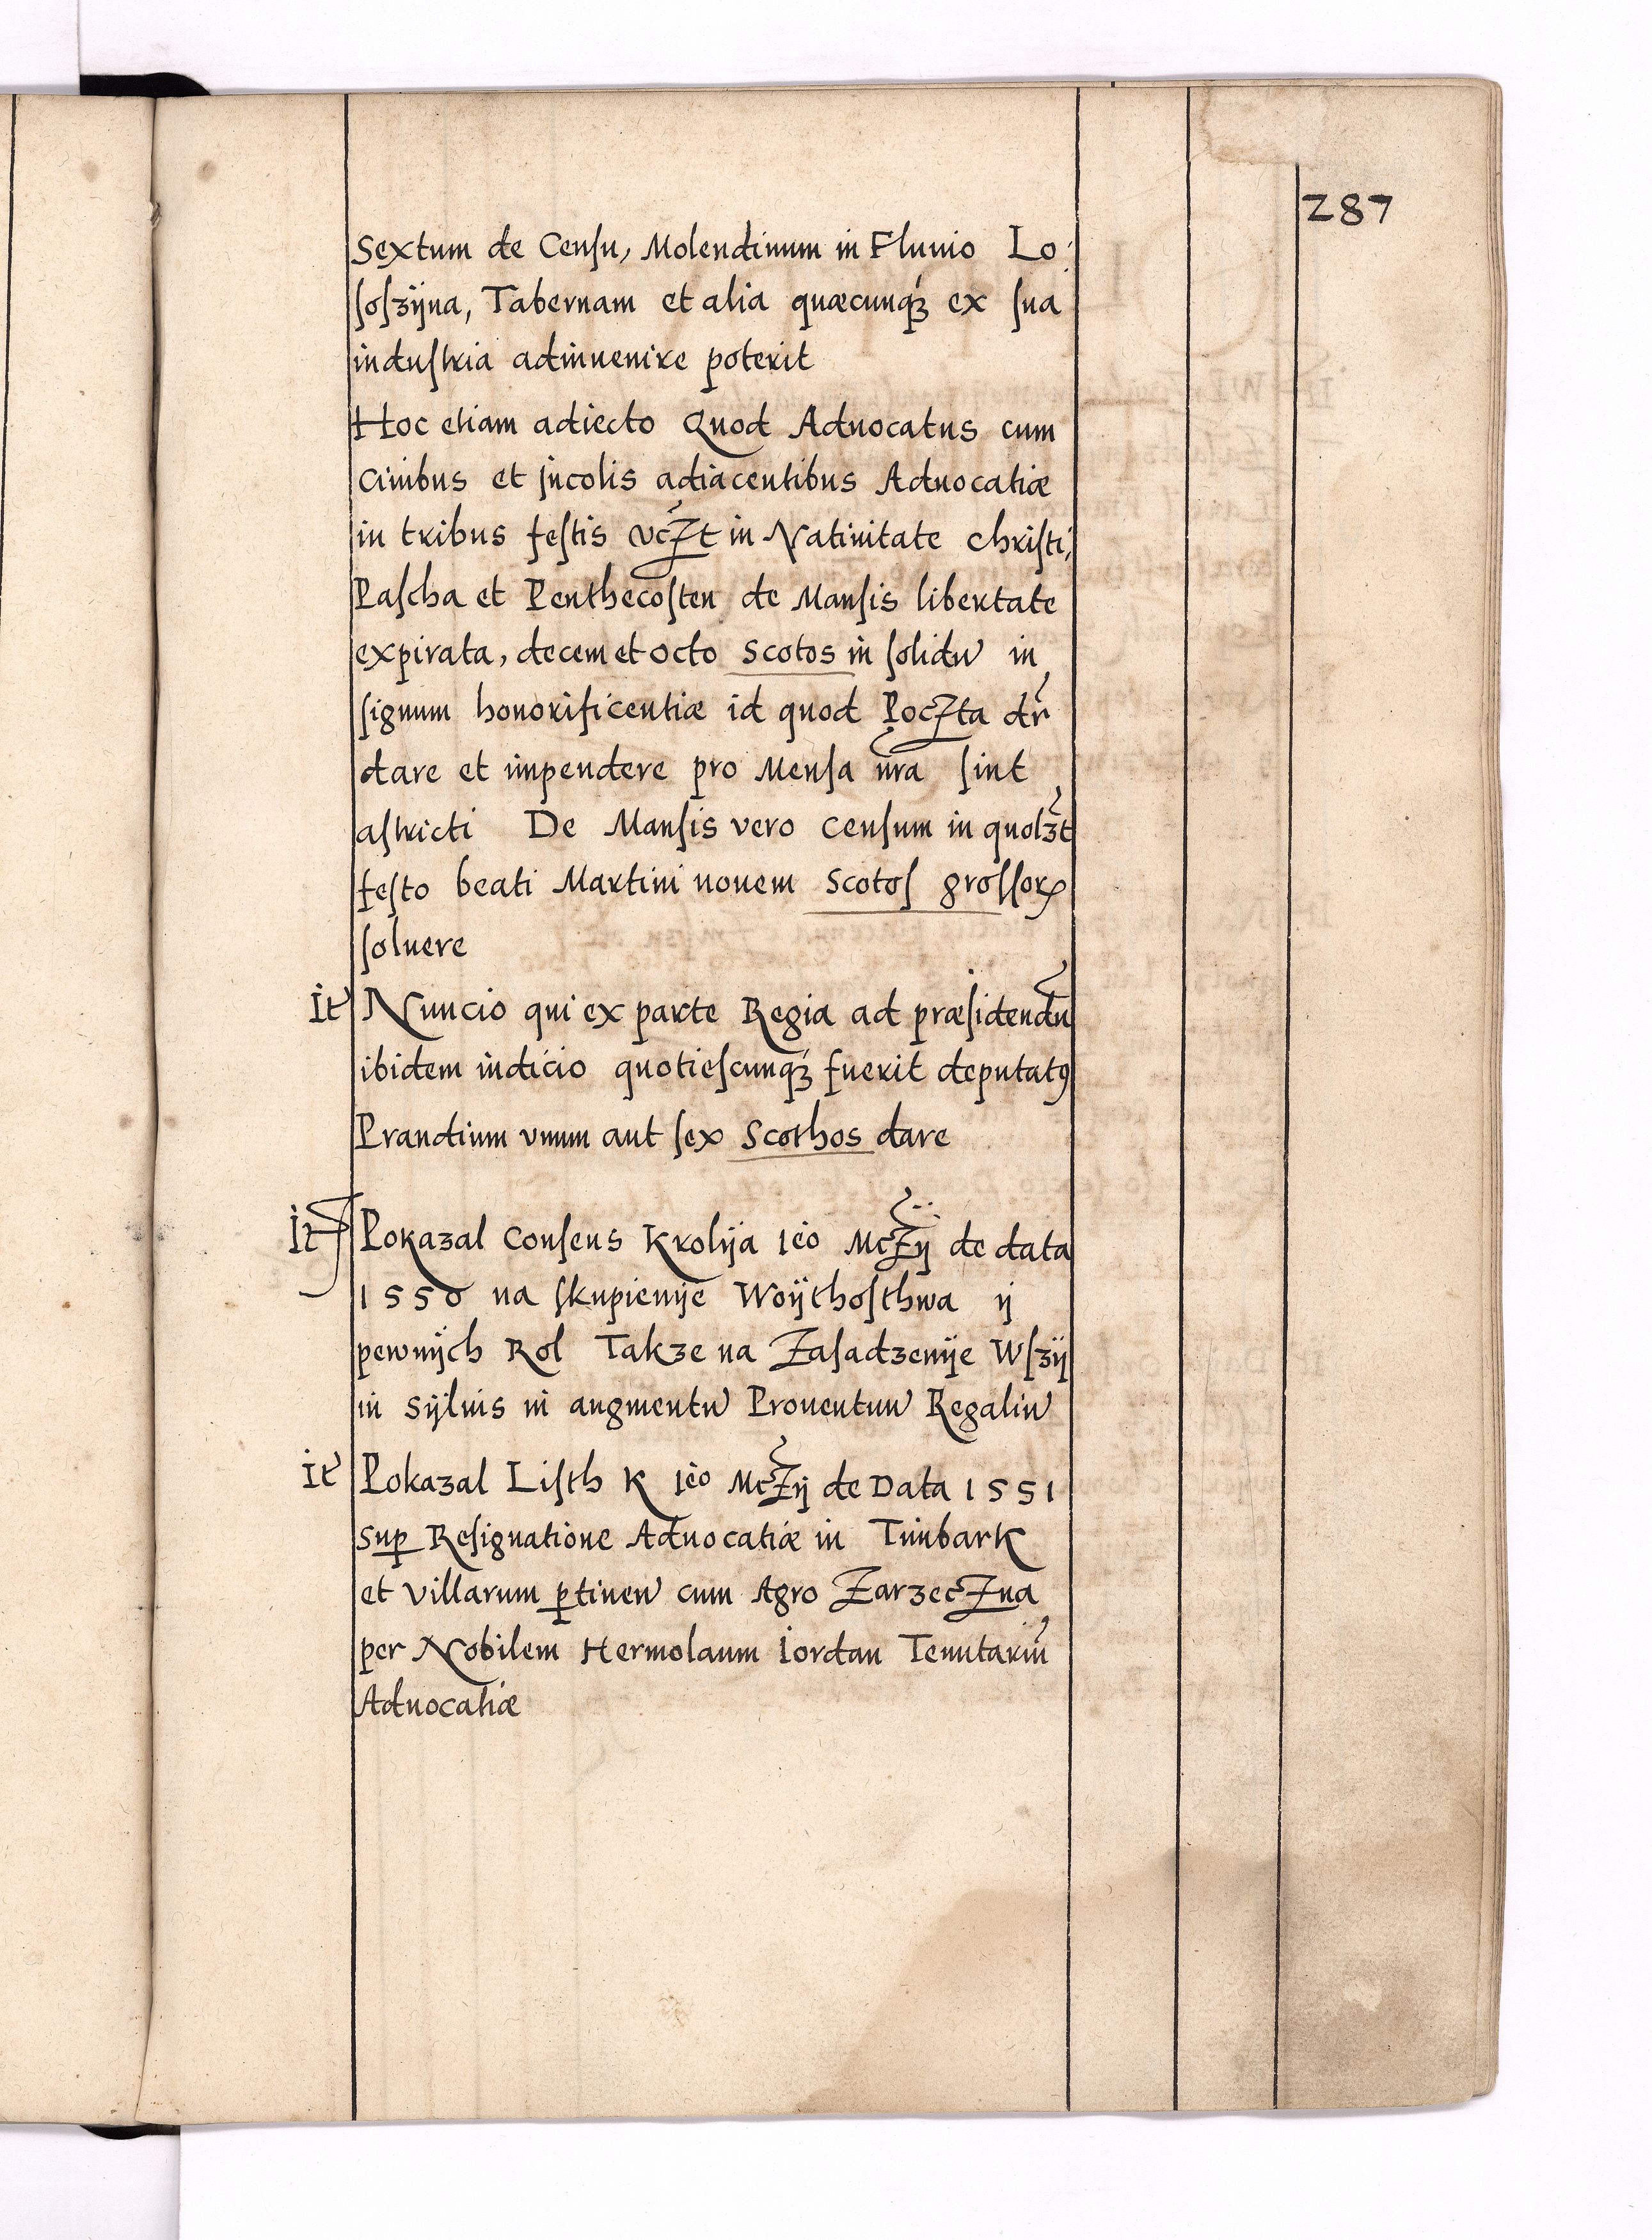 287
Sextum de Censu, Molendinum in Fluuio Lo:
ſoſzÿna, Tabernam et alia quæcunqꝫ ex ſua
induſtria adinuenire poterit
Hoc etiam adiecto Quod Aduocatus cum
Ciuibus et incolis adiacentibus Aduocatiæ
in tribus feſtis vcꝫt in Natiuitate Chriſti,
Paſcha et Penthecoſten de Manſis libertate
expirata, decem et octo Scotos in ſolidu in
ſignum honorificentiæ id quod Poczta dr̃
dare et impendere pro Menſa nr̃a ſint
aſtricti De Manſis vero Cenſum in quolꝫt
feſto beati Martini nouem Scotoſ groſſorꝝ
ſoluere
It Nuncio qui ex parte Regia ad præſidendũ
ibidem iudicio quotieſcunqꝫ fuerit deputatꝰ
Prandium vnum aut ſex Scothos dare
It Pokazal Conſens Krolÿa Ieo Mczÿ de data
1550 na ſkupienÿe Woÿthoſthwa ÿ
pewnÿch Rol Takze na Zaſadzenÿe Wſzÿ
in Sÿluis in augmentu Prouentuu Regaliu
It Pokazal Liſth K Ieo Mczÿ de Data 1551
Suꝑ Reſignatione Aduocatiæ in Timbark
et Villarum ꝑtinen cum Agro Zarzeczna
per Nobilem Hermolaum Iordan Tenutariũ
Aduocatiæ